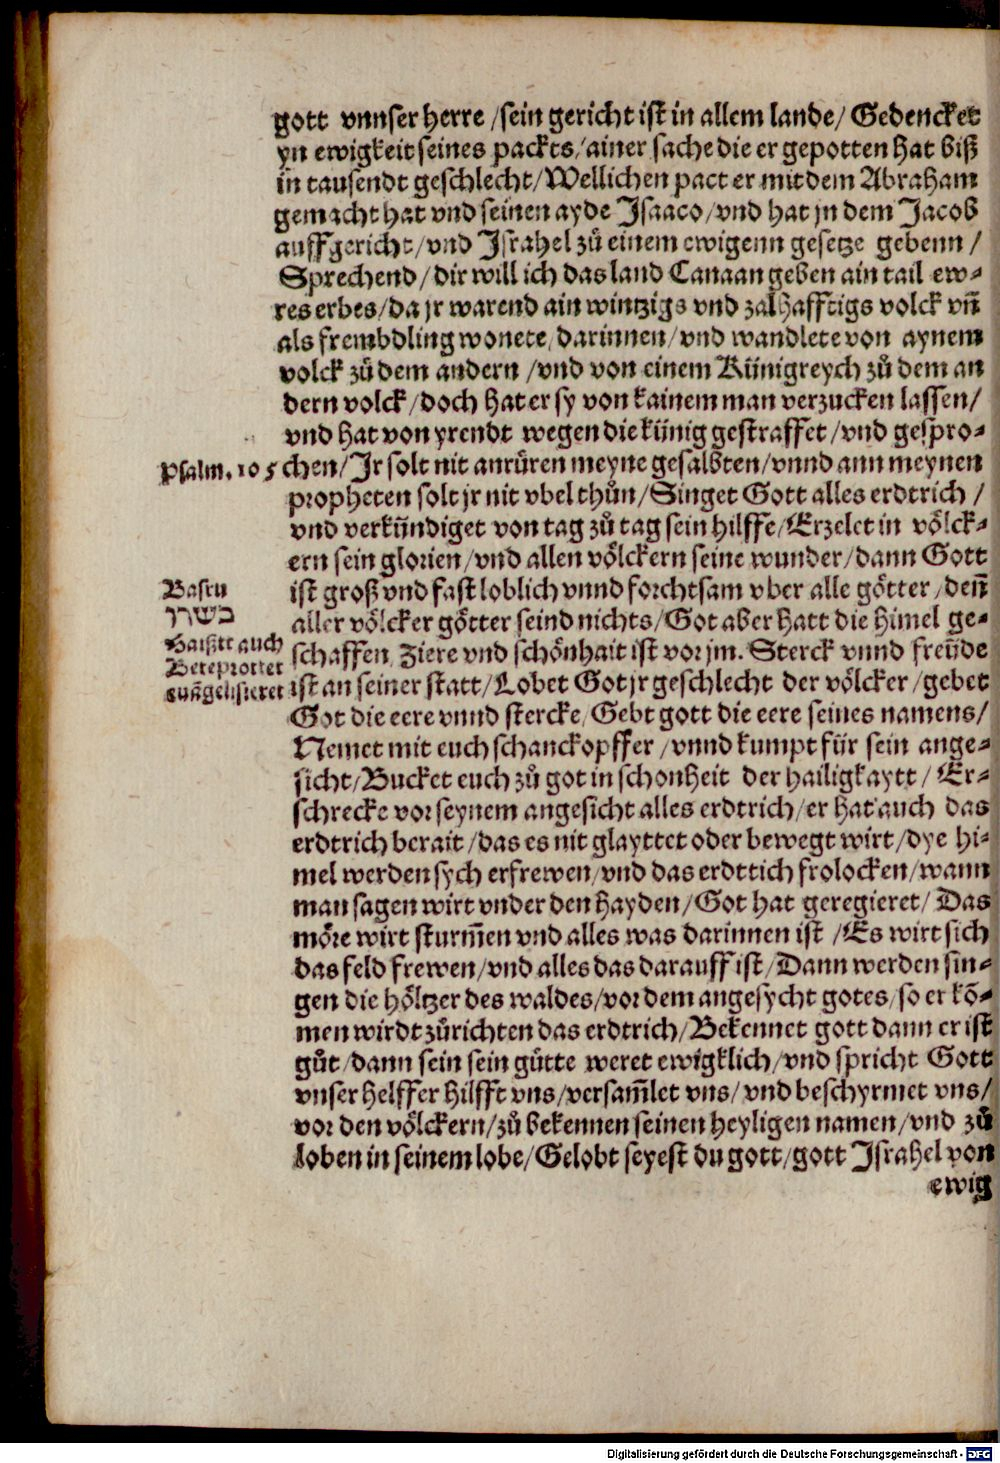 gott vnnser herre /sein gericht ist in allem lande/ Gedencket
yn ewigkeit seines packts/ ainer sache die er gepotten hat biß
in tausendt geschlecht/ Wellichen pact er mit dem Abraham
gemacht hat vnd seinen ayde Isaaco/ vnd hat jn dem Jacob
auffgericht/ vnd Israhel zů einem ewigenn gesetze gebenn /
Sprechend/ dir will ich das land Canaan geben ain tail ew⸗
res erbes/ da jr warend ain wintzigs vnd zalhafftigs volck vñ
als frembdling wonete, darinnen/ vnd wandlete von aynem
volck zů dem andern /vnd von einem Künigreych zů dem an
dern volck/ doch hat er sy von kainem man verzucken lassen/
vnd hat von yrendt wegen die künig gestraffet/ vnd gespro⸗
Psalm. 105
chen/ Jr solt nit anrüren meyne gesalbten/ vnnd ann meynen
propheten solt jr nit vbel thůn/ Singet Gott alles erdtrich /
vnd verkündiget von tag zů tag sein hilffe/ Erzelet in völck⸗
ern sein glorien/ vnd allen völckern seine wunder/ dann Gott
Basru
בשרו
Haißtt auch
Beteprottet
euãgelisieret
ist groß vnd fast loblich vnnd forchtsam vber alle götter/ deñ
aller völcker götter seind nichts/ Got aber hatt die himel ge⸗
schaffen, Ziere vnd schönhait ist vor jm. Sterck vnnd freüde
ist an seiner statt/ Lobet Got jr geschlecht der völcker/ gebet
Got die eere vnnd stercke, Gebt gott die eere seines namens/
Nemet mit euch schanckopffer/ vnnd kumpt für sein ange⸗
sicht/ Bucket euch zů got in schonheit der hailigkaytt/ Er⸗
schrecke vor seynem angesicht alles erdtrich/ er hat auch das
erdtrich berait/ das es nit glayttet oder bewegt wirt/ dye hi⸗
mel werden sych erfrewen/ vnd das erdttich frolocken/ wann
man sagen wirt vnder den hayden/ Got hat geregieret/ Das
möre wirt sturm̃en vnd alles was darinnen ist /Es wirt sich
das feld frewen/ vnd alles das darauff ist/ Dann werden sin⸗
gen die höltzer des waldes/ vor dem angesycht gotes, so er kõ⸗
men wirdt zůrichten das erdtrich/ Bekennet gott dann er ist
gůt/ dann sein sein gütte weret ewigklich/ vnd spricht Gott
vnser helffer hilfft vns/ versam̃let vns/ vnd beschyrmet vns/
vor den völckern/ zů bekennen seinen heyligen namen/ vnd zů
loben in seinem lobe/ Gelobt seyest du gott/ gott Israhel von
ewig
Digitalisierung gefördert durch die Deutsche Forschungsgemeinschaft - DFG